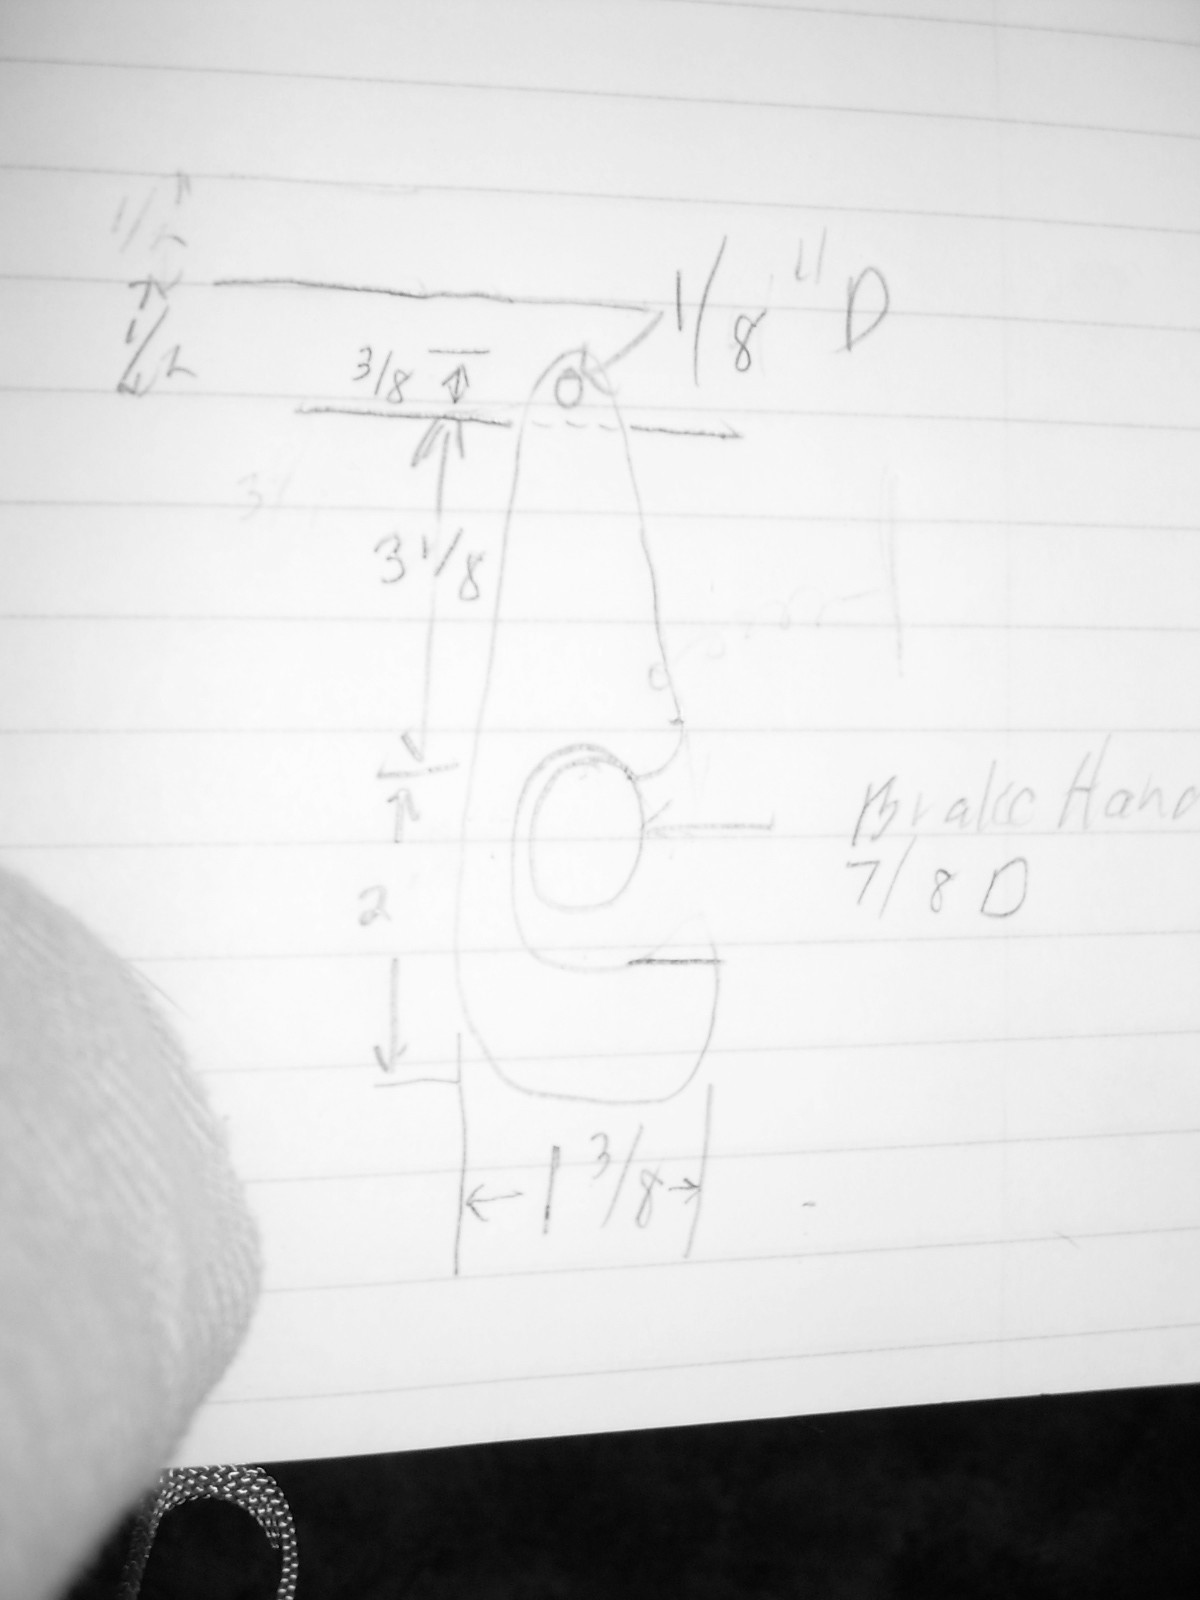 1/2
1/8" D
1/2
3/8
3 1/8
Brake Hand
7/8 D
2
1 3/8